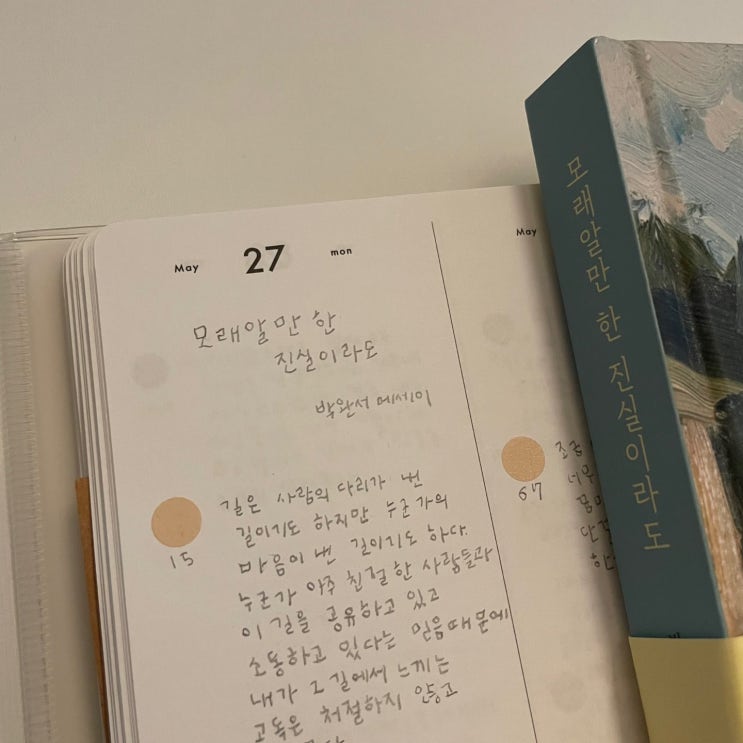 May 27 mon
모래알만 한
진실이라도
박완서 에세이
15
길은 사람의 다리가 낸
길이기도 하지만 누군가의
마음이 낸 길이기도 하다.
누군가 아주 친절한 사람들과
이 길을 공유하고 있고
소통하고 있다는 믿음때문에
내가 그 길에서 느끼는
고독은 처절하지 않고
May
67
모래알만 한 진실이라도